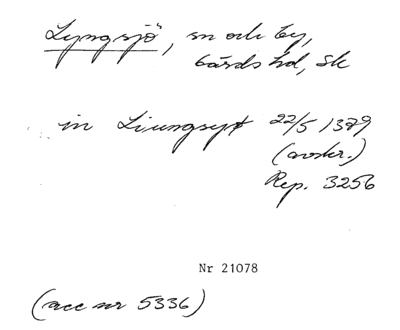 Lyngsjö, sn och by,
Gärds hd, Sk
in Liungsyø 22/5 1389
(avskr.)
Rep. 3256
Nr 21078
(acc nr 5336)